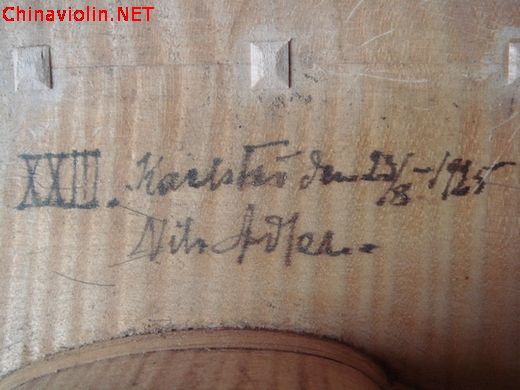 Chinaviolin.NET
XXIII. Karlstad den 23/8-1925
Nils Adler.-